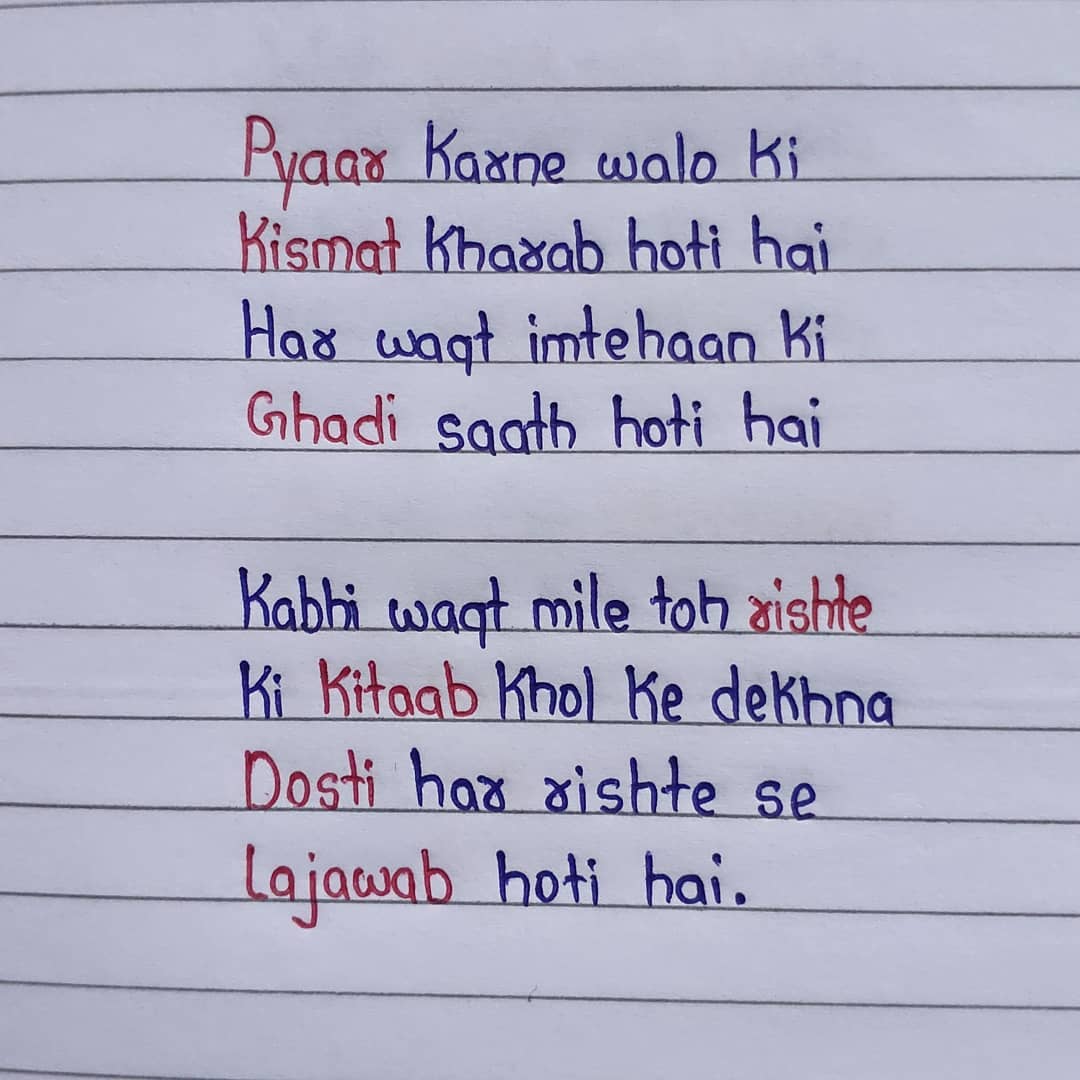 Pyaar Karne walo Ki
Kismat Kharab hoti hai
Har waqt imtehaan Ki
Ghadi saath hoti hai
Kabhi waqt mile toh rishte
Ki Kitaab Khol Ke dekhna
Dosti har rishte se
Lajawab hoti hai.